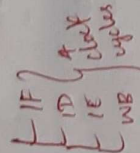 IF
ID
IE
WB
4
clock
cycles